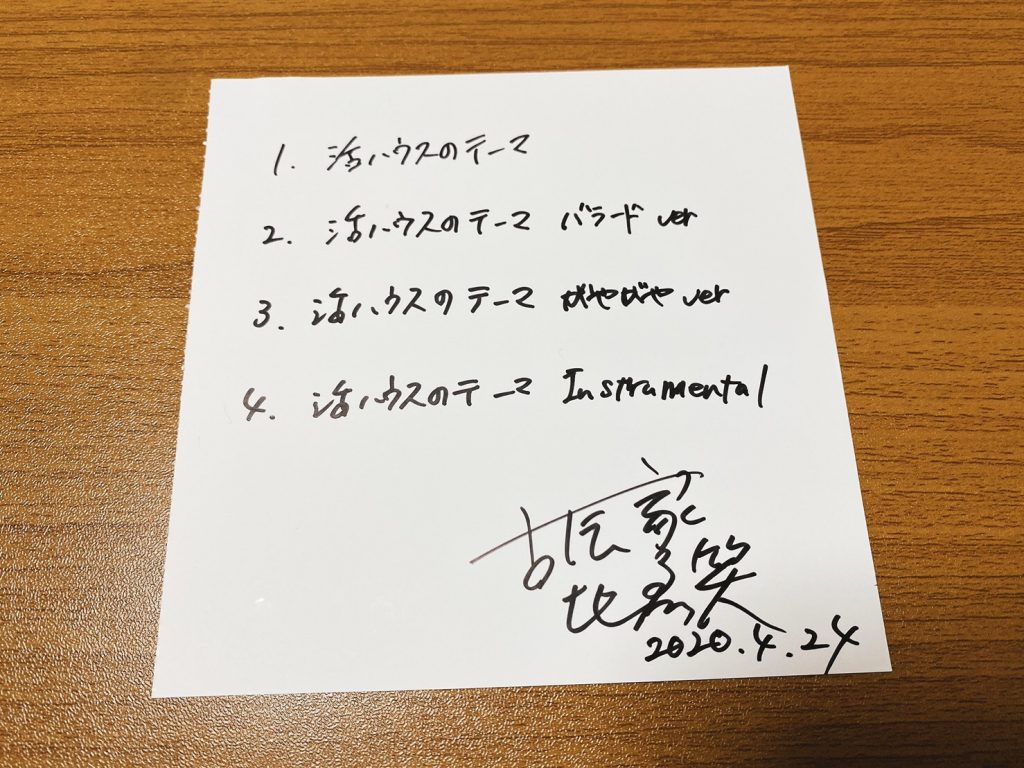 1. 活ハウスのテーマ
2. 活ハウスのテーマ バラード ver
3. 活ハウスのテーマ がやがや ver
4. 活ハウスのテーマ Instrumental
2020.4.24